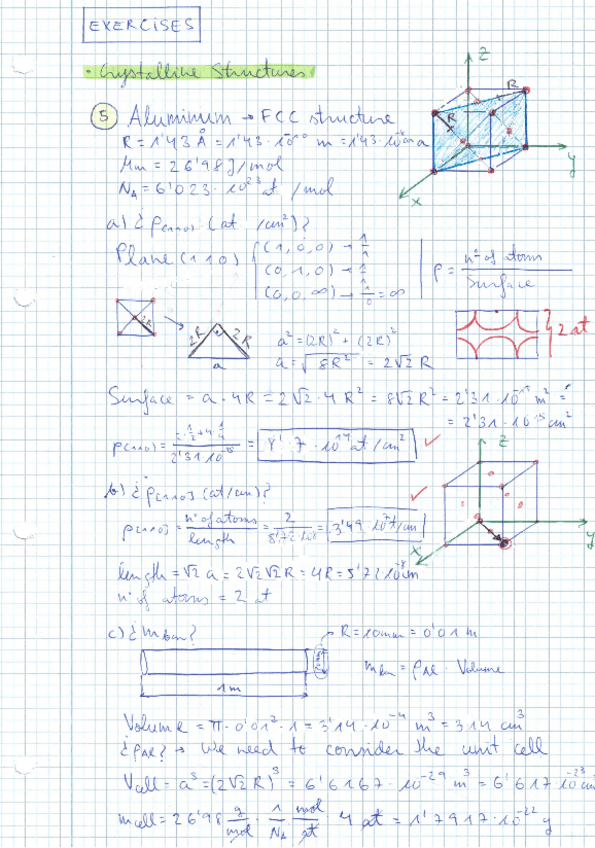 EXERCISES
· Crystalline Structures
5 Aluminum → FCC structure
R = 1'43 Å = 1'43·10⁻¹⁰ m = 1'43·10⁻⁸ cm
Mm = 26'98 g/mol
N_A = 6'023·10²³ at/mol
a) ¿ρ(110) (at/cm²)?
Plane (110)
(1,0,0) → 1/1
(0,1,0) → 1/1
(0,0,∞) → 1/0 = ∞
ρ = nº of atoms / Surface
z
R
R
a
y
x
2R
2R
2R
a
a² = (2R)² + (2R)²
a = √8R² = 2√2 R
2 at
Surface = a·4R = 2√2·4R² = 8√2R² = 2'31·10⁻¹⁹ m² =
= 2'31·10⁻¹⁵ cm²
ρ(110) = = 8'7·10¹⁴ at/cm² ✓
b) ¿ρ[110] (at/cm)?
ρ[110] = nº of atoms / length = 2 / 5'72·10⁻⁸ = 3'49·10⁷ at/cm ✓
z
y
x
length = √2 a = 2√2√2R = 4R = 5'72·10⁻⁸ cm
nº of atoms = 2 at
c) ¿m_bar?
R = 10mm = 0'01 m
1m
m_bar = ρ_Al · Volume
Volume = π·0'01²·1 = 3'14·10⁻⁴ m³ = 314 cm³
¿ρ_Al? → We need to consider the unit cell
Vcell = a³ = (2√2 R)³ = 6'6167·10⁻²⁹ m³ = 6'617·10⁻²³ cm³
mcell = 26'98 g/mol · 1/N_A mol/at 4 at = 1'7917·10⁻²² g